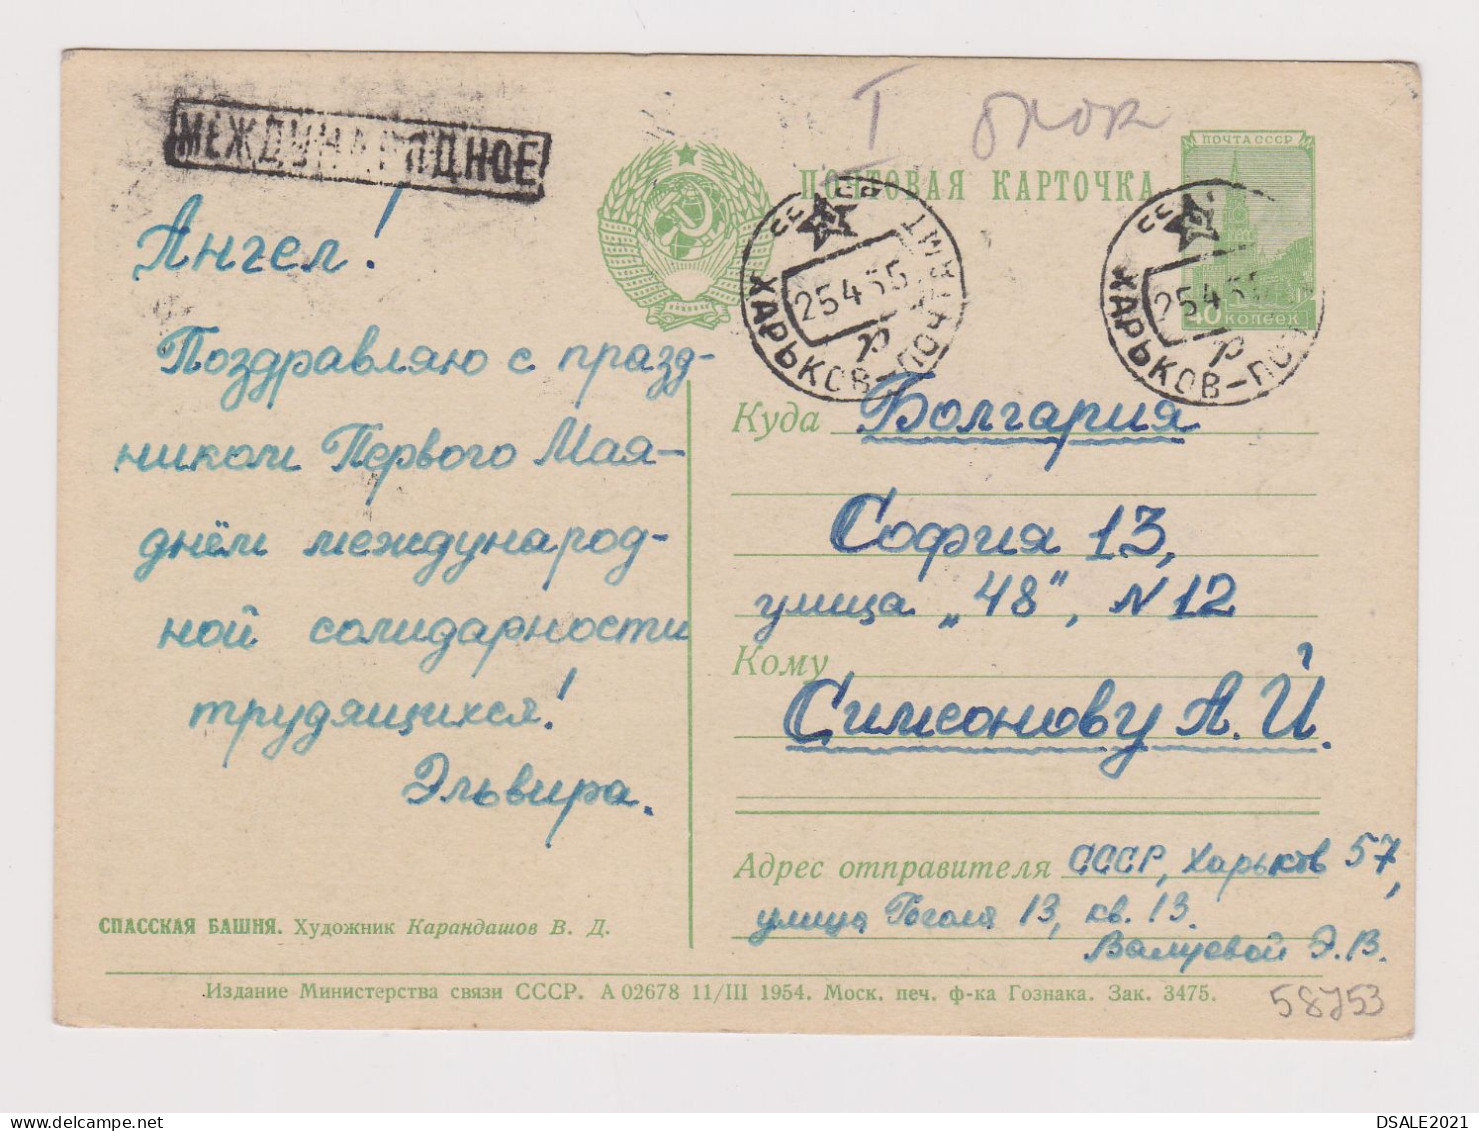 МЕЖДУНАРОДНОЕ
Ангел!
Поздравляю с празд-
ником Первого Мая-
днём международ-
ной солидарности
трудящихся!
Эльвира.
СПАССКАЯ БАШНЯ. Художник Карандашов В. Д.
I
ПОЧТОВАЯ КАРТОЧКА
ПОЧТА СССР
40 КОПЕЕК
ХАРЬКОВ-ПОЧТАМТ
25 4 55
р
ХАРЬКОВ-ПОЧ
25 4 55
р
Куда Болгария
София 13,
улица „48", N 12
Кому
Симеонову А. Й.
Адрес отправителя СССР, Харьков 57,
улица Гоголя 13, кв. 13.
Валуевой Э. В.
Издание Министерства связи СССР. А 02678 11/III 1954. Моск. печ. ф-ка Гознака. Зак. 3475.
DSALE2021